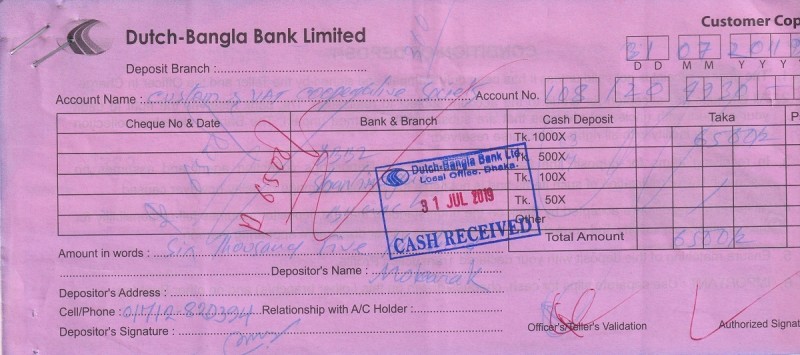 Customer Cop
Dutch-Bangla Bank Limited
31 07 201
D D M M Y Y Y
Deposit Branch :
Account Name : Custom & VAT cooperative Society Account No. 108 120
Cheque No & Date Bank & Branch Cash Deposit Taka P
Tk. 1000X 6500/-
Tk. 500X
Tk. 100X
Tk. 50X
Other
6500/-
Dutch-Bangla Bank Ltd.
Local Office, Dhaka.
31 JUL 2019
CASH RECEIVED
Total Amount 6500/-
Amount in words : Six Thousand five
Depositor's Name : Mobarak
Depositor's Address :
Cell/Phone : 01712 820394 Relationship with A/C Holder :
Depositor's Signature :
Officer's/Teller's Validation Authorized Signat